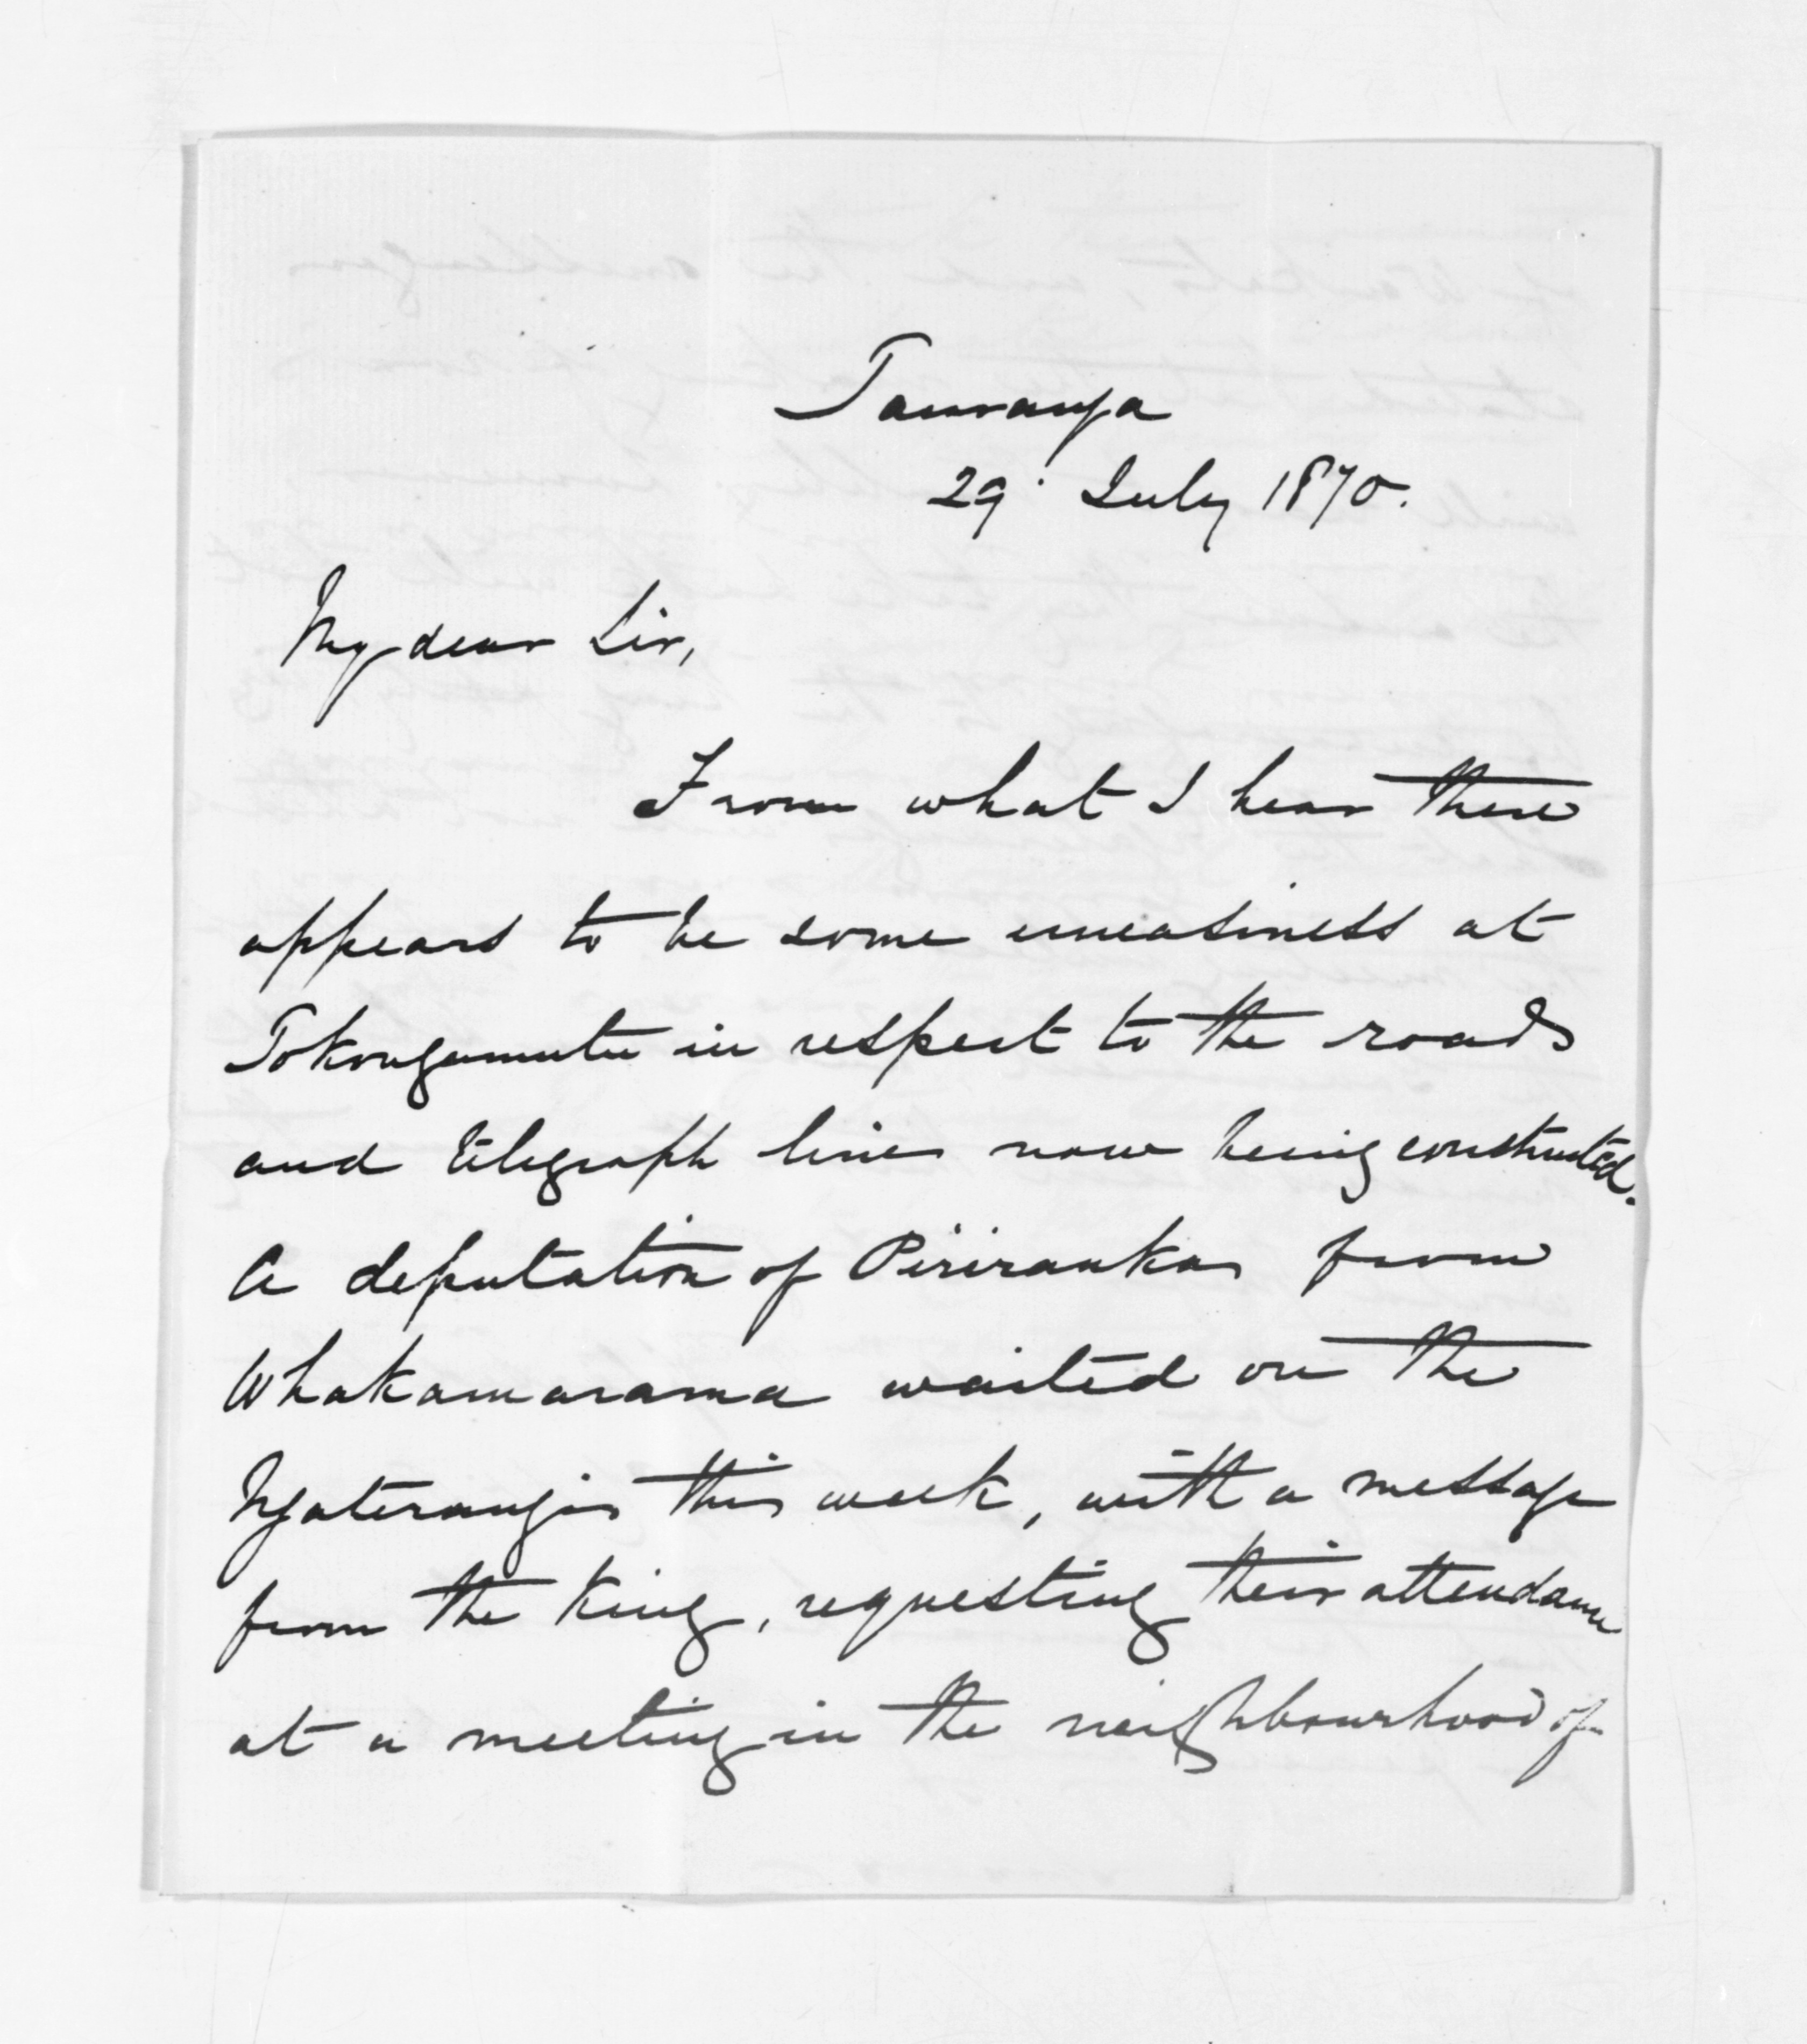 Tauranga
29 July 1870.
My dear Sir,
From what I hear there
appears to be some uneasiness at
Tokongamutu in respect to the roads
and telegraph lines now being constructed.
A deputation of Piriraukas from
Whakamarama waited on the
Ngaterangis this week, with a message
from the King, requesting their attendance
at a meeting in the neighbourhood of